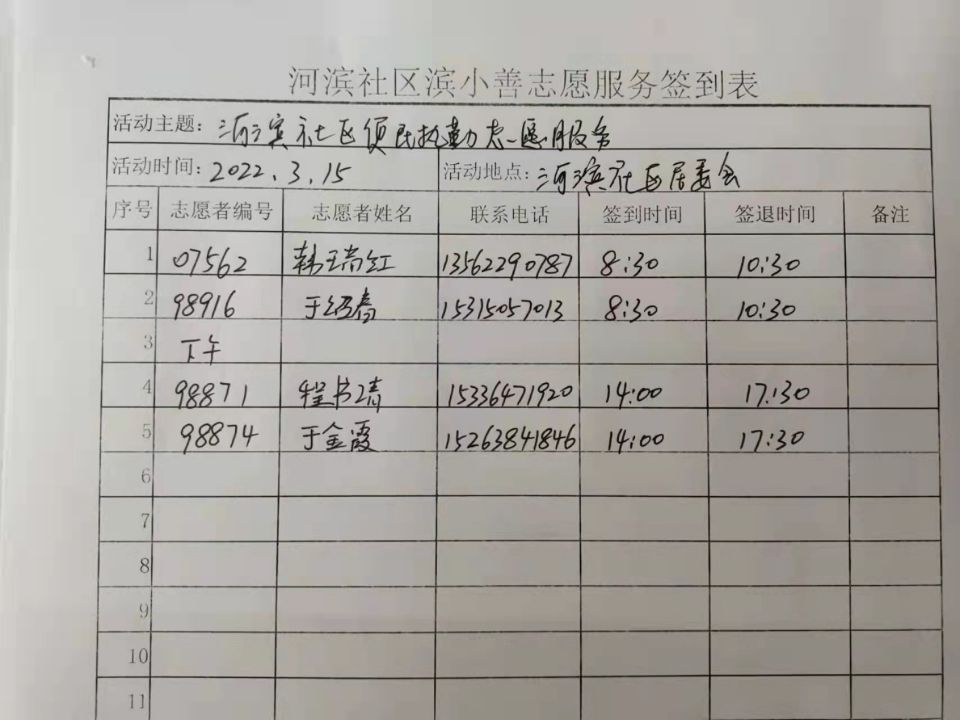 河滨社区滨小善志愿服务签到表
活动主题: 河滨社区便民执勤志愿服务
活动时间: 2022.3.15 活动地点: 河滨社区居委会
序号 志愿者编号 志愿者姓名 联系电话 签到时间 签退时间 备注
1 07562 韩瑞红 13562290787 8:30 10:30
2 98916 于绍春 15315057013 8:30 10:30
3 下午
4 98871 程书靖 15336471920 14:00 17:30
5 98874 于金霞 15263841846 14:00 17:30
6
7
8
9
10
11